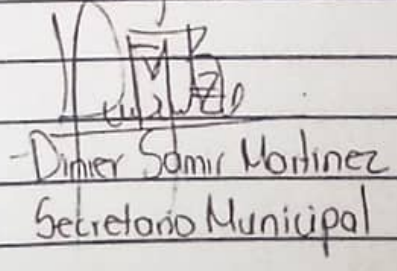 -Dimier Samir Martinez
Secretario Municipal